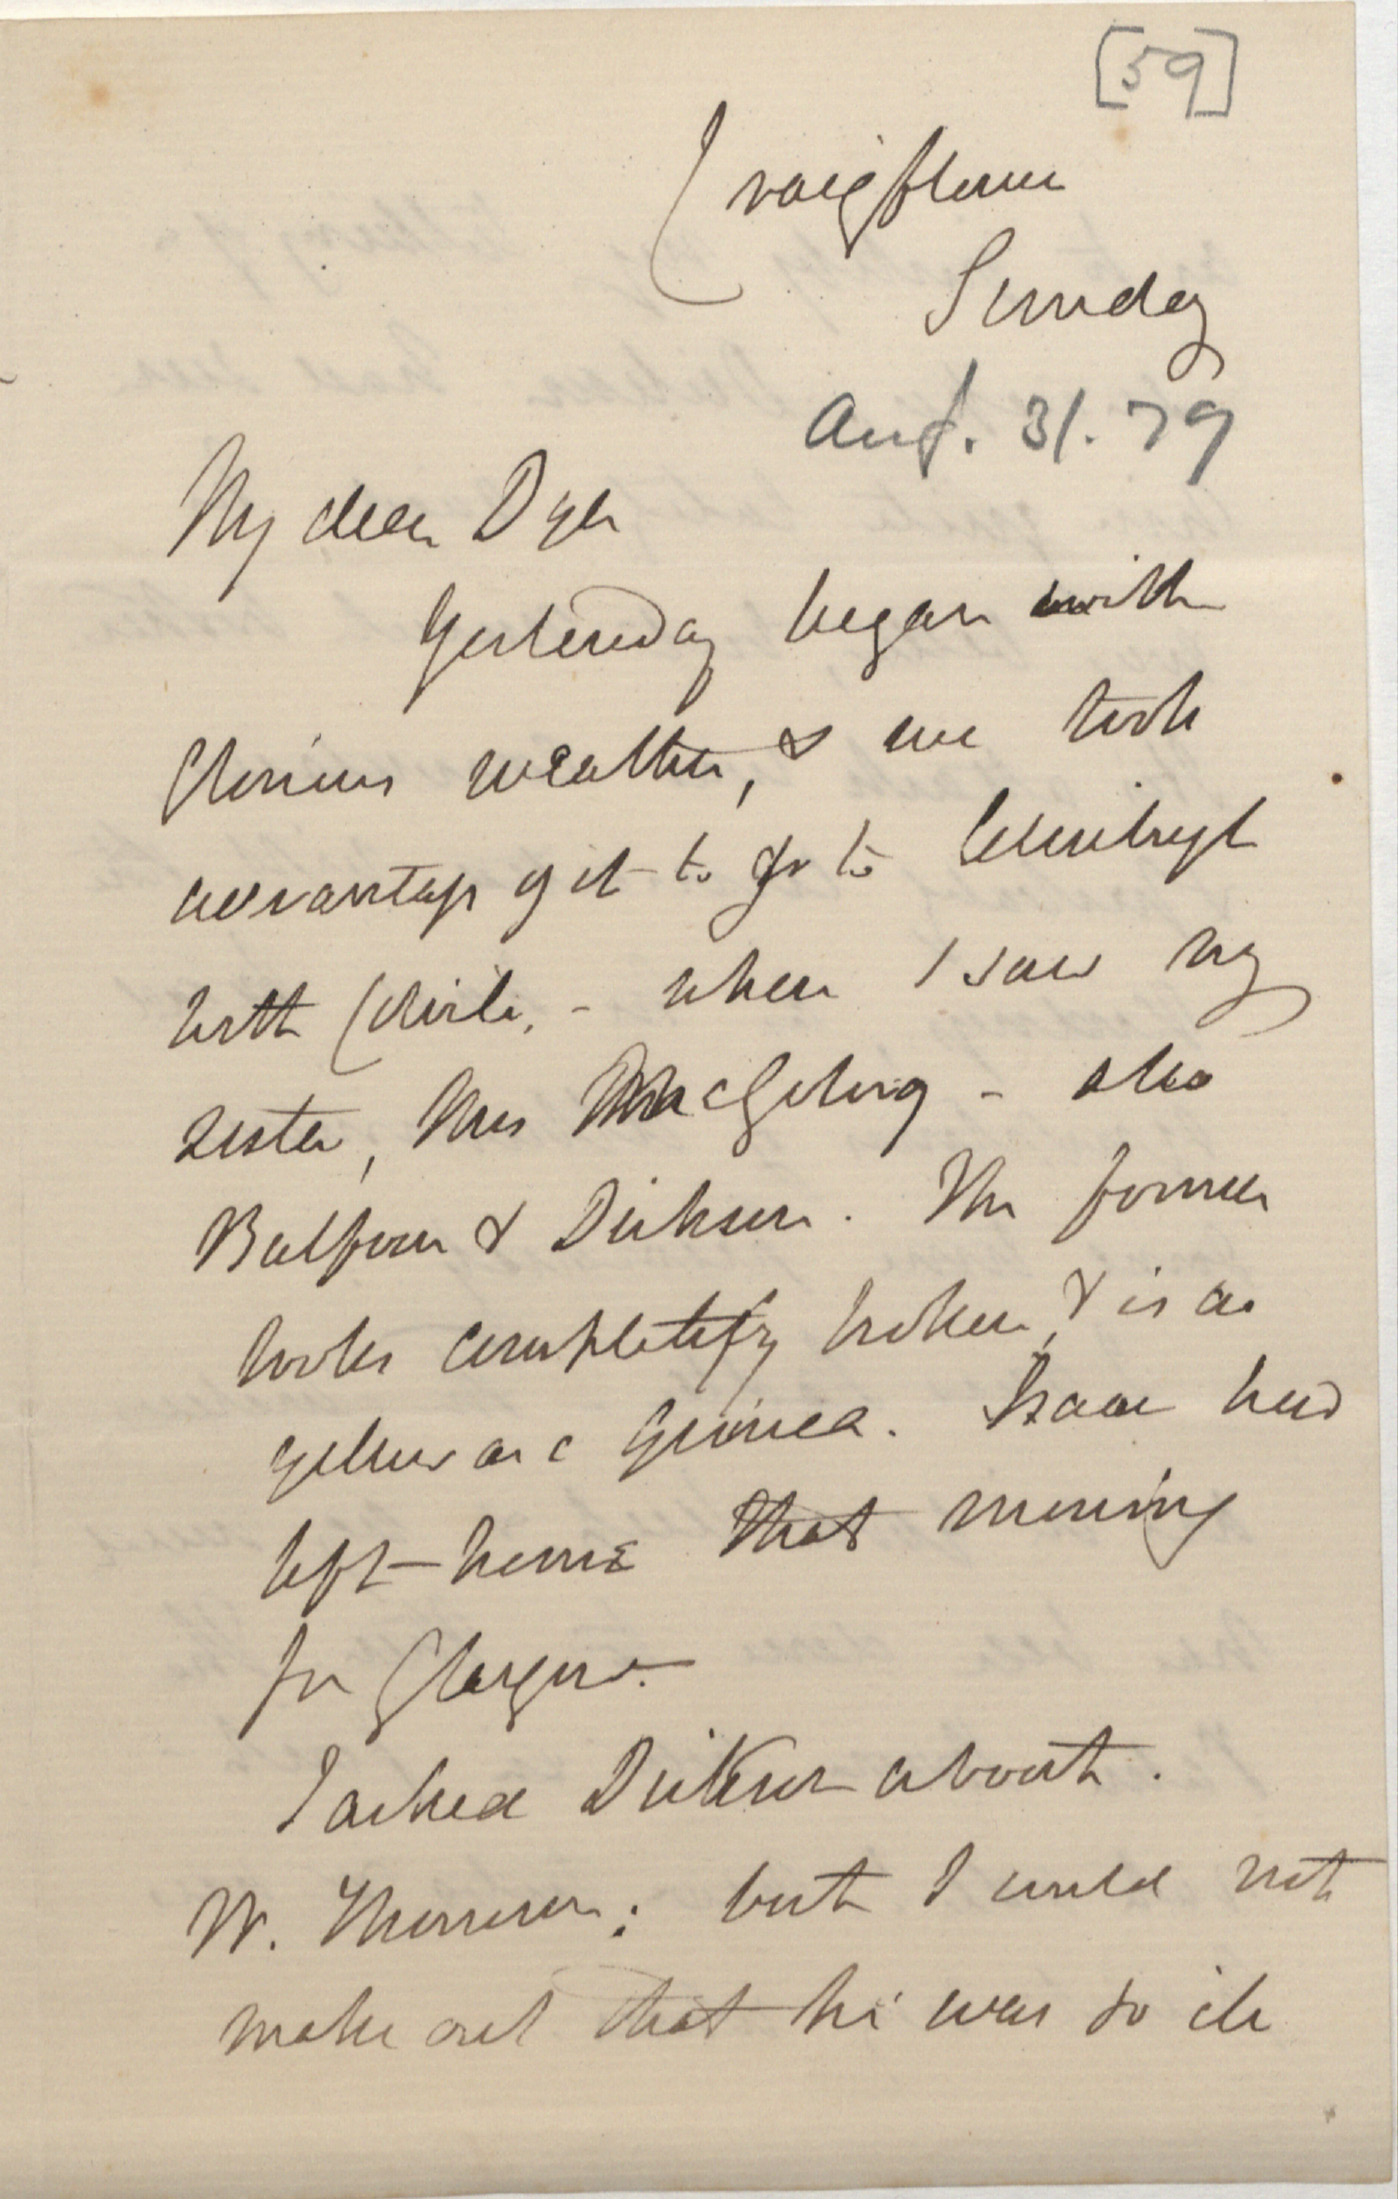 [59]
Craigflower
Sunday
Aug. 31. 79
My dear Dyer
Yesterday began with
glorious weather, & we took
advantage of it to go to Edinburgh
with Colvile, - where I saw my
sister, Mrs MacGilvray - also
Balfour & Dickson. The former
looks completely broken, & is as
yellow as a guinea. Isaac had
left home that morning
for Glasgow.
I asked Dickson about
W. Morrison; but I could not
make out that he was so ill